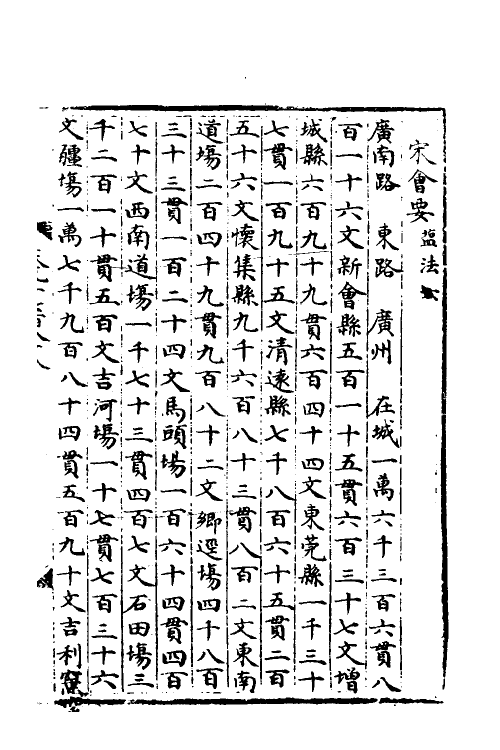 宋會要 盐法
廣南路 東路 廣州 在城一萬六千三百六貫八
百一十六文新會縣五百一十五貫六百三十七文增
城縣六百九十九貫六百四十四文東莞縣一千三十
七貫一百九十五文清遠縣七千八百六十五貫二百
五十六文懷集縣九千六百八十三貫八百二文東南
道場二百四十九貫九百八十二文鄉逕場四十八百
三十三貫一百二十四文馬頭場一百六十四貫四百
七十文西南道場一千七十三貫四百七文石田場三
千二百一十貫五百文吉河場一十七貫七百三十六
文疆場一萬七千九百八十四貫五百九十文吉利